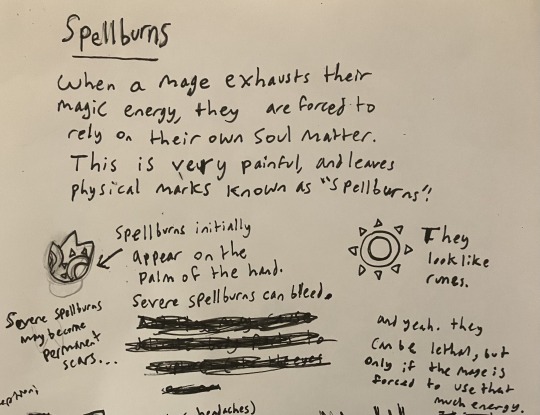 Spellburns
When a mage exhausts their
magic energy, they are forced to
rely on their own Soul Matter.
This is very painful, and leaves
physical marks known as "Spellburns"!
Spellburns initially
appear on the
palm of the hand.
Severe spellburns can bleed.
They
look like
runes.
Severe spellburns
may become
permanent
scars...
and yeah. they
can be lethal, but
only if the mage is
forced to use that
much energy.
headaches)